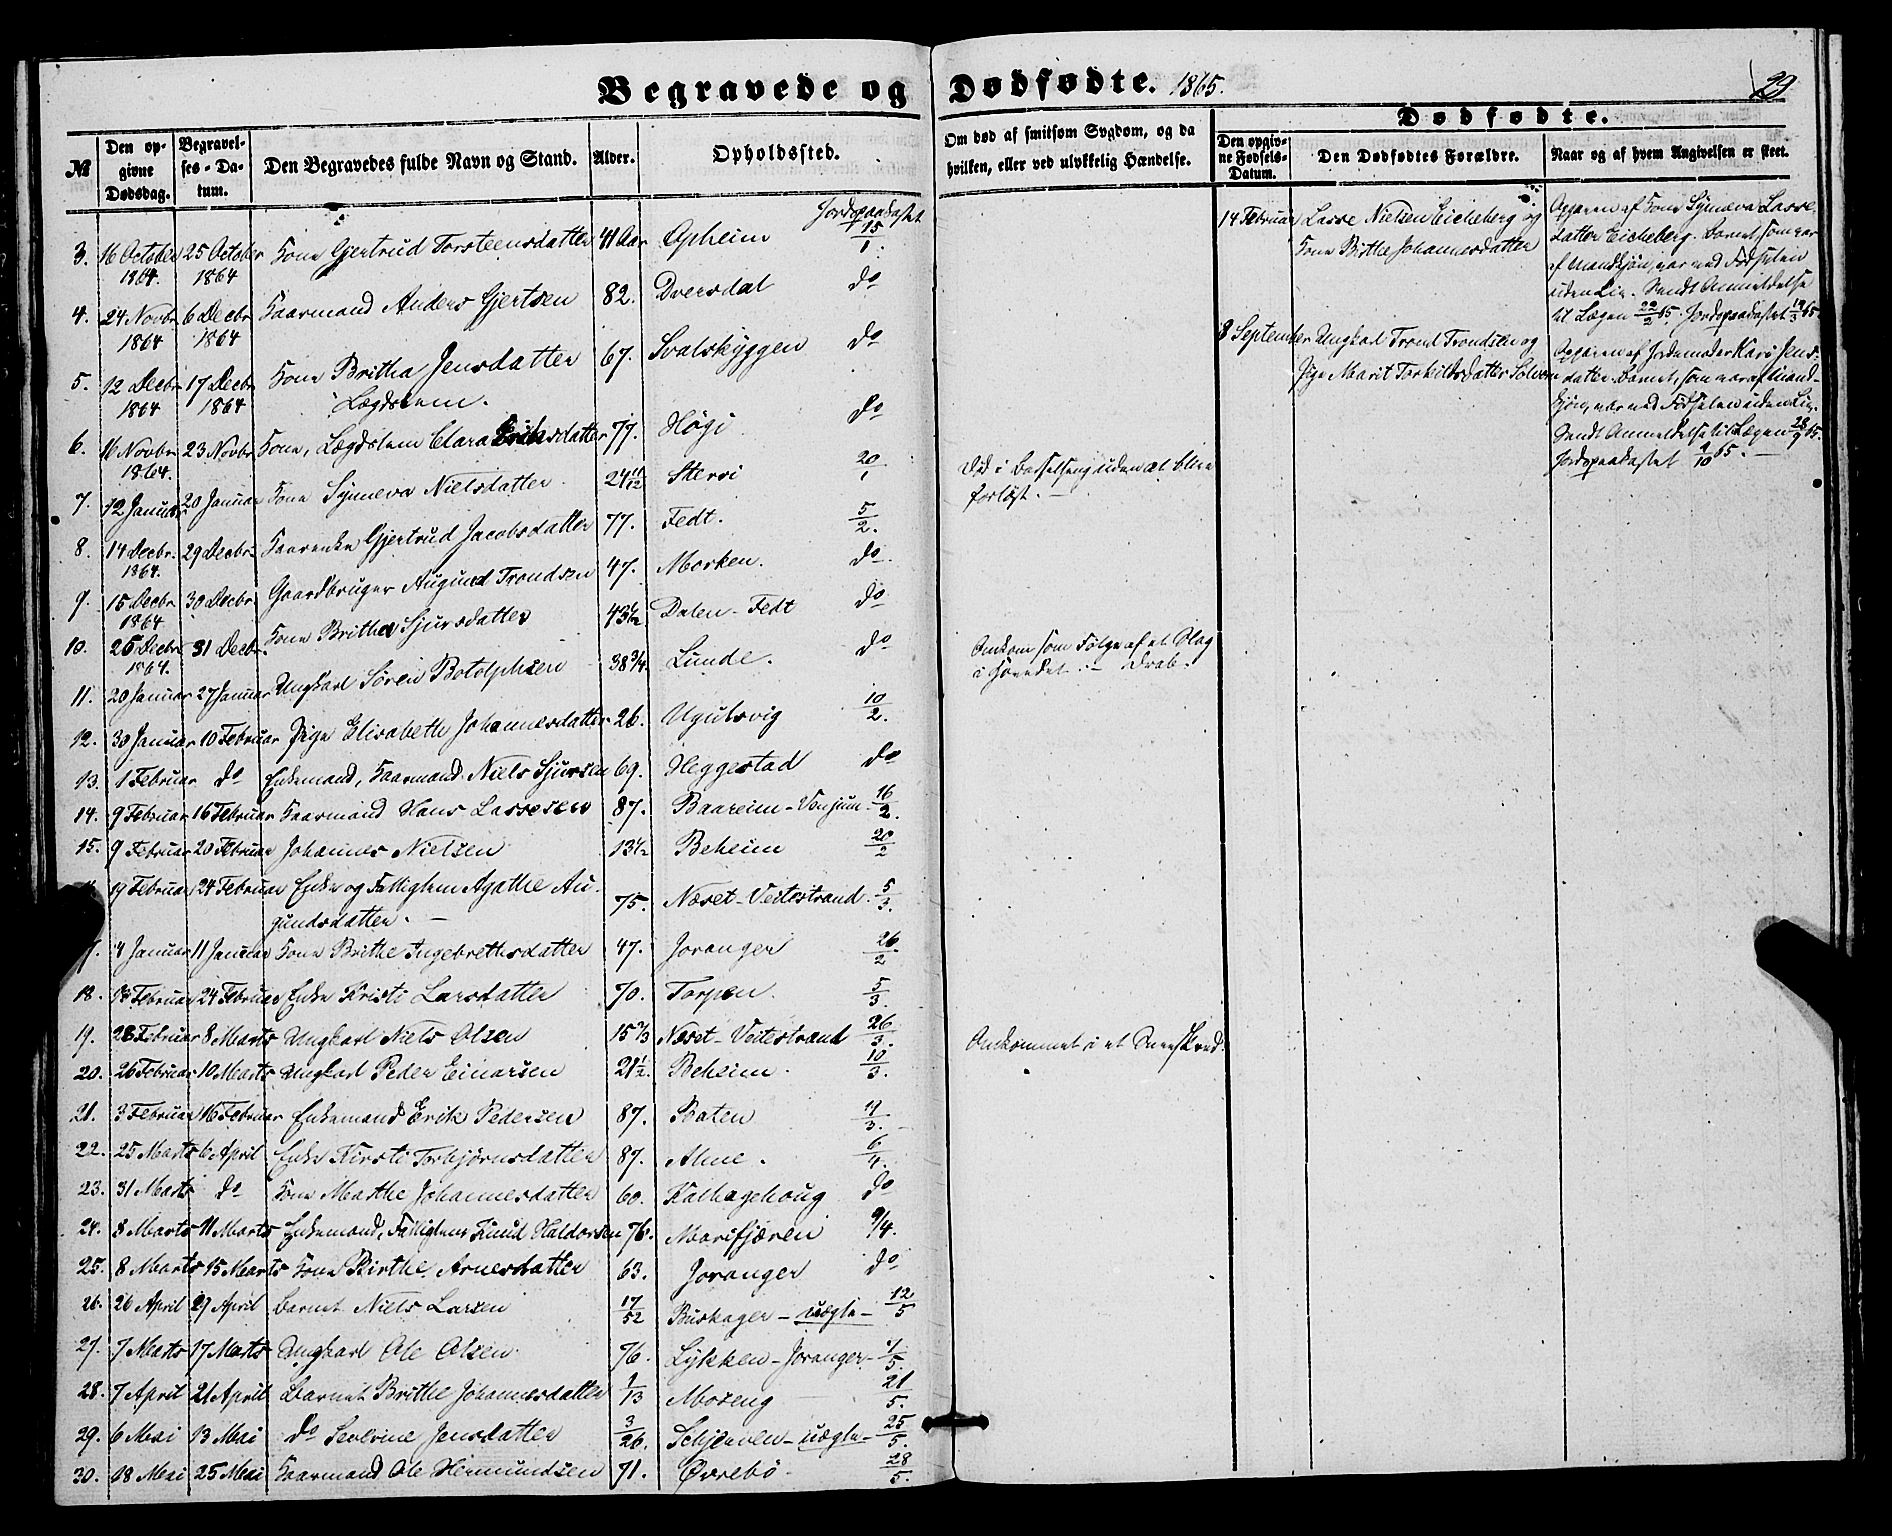 Begravede og Dødfødte. 1865.
29
Dødfødte.
№
Den opgivne Dødsdag.
Begravelses-Datum.
Den Begravedes fulde Navn og Stand.
Alder.
Opholdssted.
Om død af smitsom Sygdom, og da hvilken, eller ved ulykkelig Hændelse.
Den opgivne Fødsels-Datum.
Den Dødfødtes Forældre.
Naar og af hvem Angivelsen er skeet.
Jordpaakastet
3. 16 October 1864. 25 October 1864 Kone Gjertrud Torsteensdatter 41 Aar Opheim 15/1
4. 24 Novbr 1864 6 Decbr 1864 Kaarmand Anders Gjertsen 82. Dversdal do
5. 12 Decbr 1864 17 Decbr 1864 Kone Britha Jensdatter 67. Svalskyggen do
Lægdslem.
6. 16 Novbr 1864. 23 Novbr Kone, Lægdslem Clara Eriksdatter 77. Høgi do
7. 12 Januar 20 Januar Kone Synneva Nielsdatter 24 11/12 Skersi 20/1 Død i Barselseng uden at blive
forløst. —
8. 14 Decbr. 1864. 29 Decbr. Kaarenke Gjertrud Jacobsdatter 77. Fedt. 5/2.
9. 15 Decbr 1864 30 Decbr Gaardbruger Augund Trondsen 47. Morken. do
10. 26 Decbr 1864. 31 Decbr. Kone Brithe Sjursdatter 43 1/2 Dalen-Fedt do
11. 20 Januar 27 Januar Ungkarl Søren Botolphsen 38 3/4. Lunde. do Omkom som Følge af et Slag
i Hovedet. — Drab.
12. 30 Januar 10 Februar Pige Elisabeth Johannesdatter 26. Ugulsvig 10/2.
13. 1 Februar do Enkemand, Kaarmand Niels Sjursen 69. Heggestad do
14. 9 Februar 16 Februar Kaarmand Hans Lassesen 87. Baareim-Vanjum 16/2.
15. 9 Februar 20 Februar Johannes Nielsen 13 1/2 Beheim 20/2
19 Februar 24 Februar Enke og Fattiglem Agathe Au-
gundsdatter. — 75. Næset-Veitestrand 5/3.
7. 4 Januar 11 Januar Kone Brithe Ingebrethsdatter 47. Joranger 26/2
18. 18 Februar 24 Februar Enke Kristi Larsdatter 70. Torpen. 5/3.
19. 28 Februar 8 Marts Ungkarl Niels Olsen 15 2/3 Næset-Veitestrand 26/3. Omkommet i et Sneeskred.
20. 26 Februar 10 Marts Ungkarl Peder Einarsen 21 1/2. Beheim. 10/3.
21. 3 Februar 16 Februar Enkemand Erik Pedersen 87. Baten 19/3.
22. 25 Marts 6 April Enke Kirsti Torbjørnsdatter 87. Alme. 6/4.
23. 31 Marts do Kone Marthe Johannesdatter 60. Kalhagehoug do
24. 8 Marts 11 Marts Enkemand, Fattiglem Knud Haldorsen 76. Marifjæren 9/4.
25. 8 Marts 15 Marts Kone Birthe Arnesdatter 63. Joranger do
26. 26 April 29 April Barnet Niels Larsen 17/52 Buskager — uægte — 12/5
27. 7 Marts 17 Marts Ungkarl Ole Olsen 76. Lykken-Joranger
28. 7 April 21 April Barnet Brithe Johannesdatter 1/13 Moseng 21/5.
29. 6 Mai 13 Mai do Severine Jensdatter 3/26. Schjerven — uægte — 25/5.
30. 18 Mai 25 Mai Kaarmand Ole Hermundsen 71. Øvrebø. 28/5.
14 Februar Lasse Nielsen Eicheberg og
Kone Birthe Johannesdatter
Opgaven af Kone Synneva Lasse-
datter Eicheberg. Barnet som var
af Mandkjøn, var ved Fødselen
uden Liv. Sendt Anmeldelse
til Lægen 22/2 65. Jordpaakastet 19/3 65.
8 September Ungkarl Trond Trondsen og
Pige Marit Torkildsdatter
Opgaven af Jordemoder Kari Jens-
datter. Barnet, som var af Mand-
kjøn, var ved Fødselen uden Liv.
Sendt Anmeldelse til Lægen 28/9 65.
Jordpaakastet 9/10 65. —